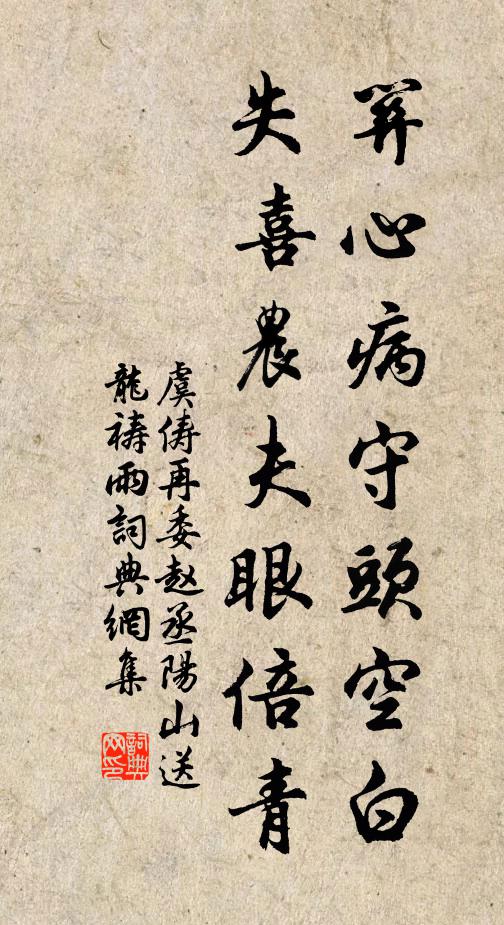 關心病守頭空白
失喜農夫眼倍青
虞儔再委趙丞陽山送
龍禱雨詞典網集
詞典
网印